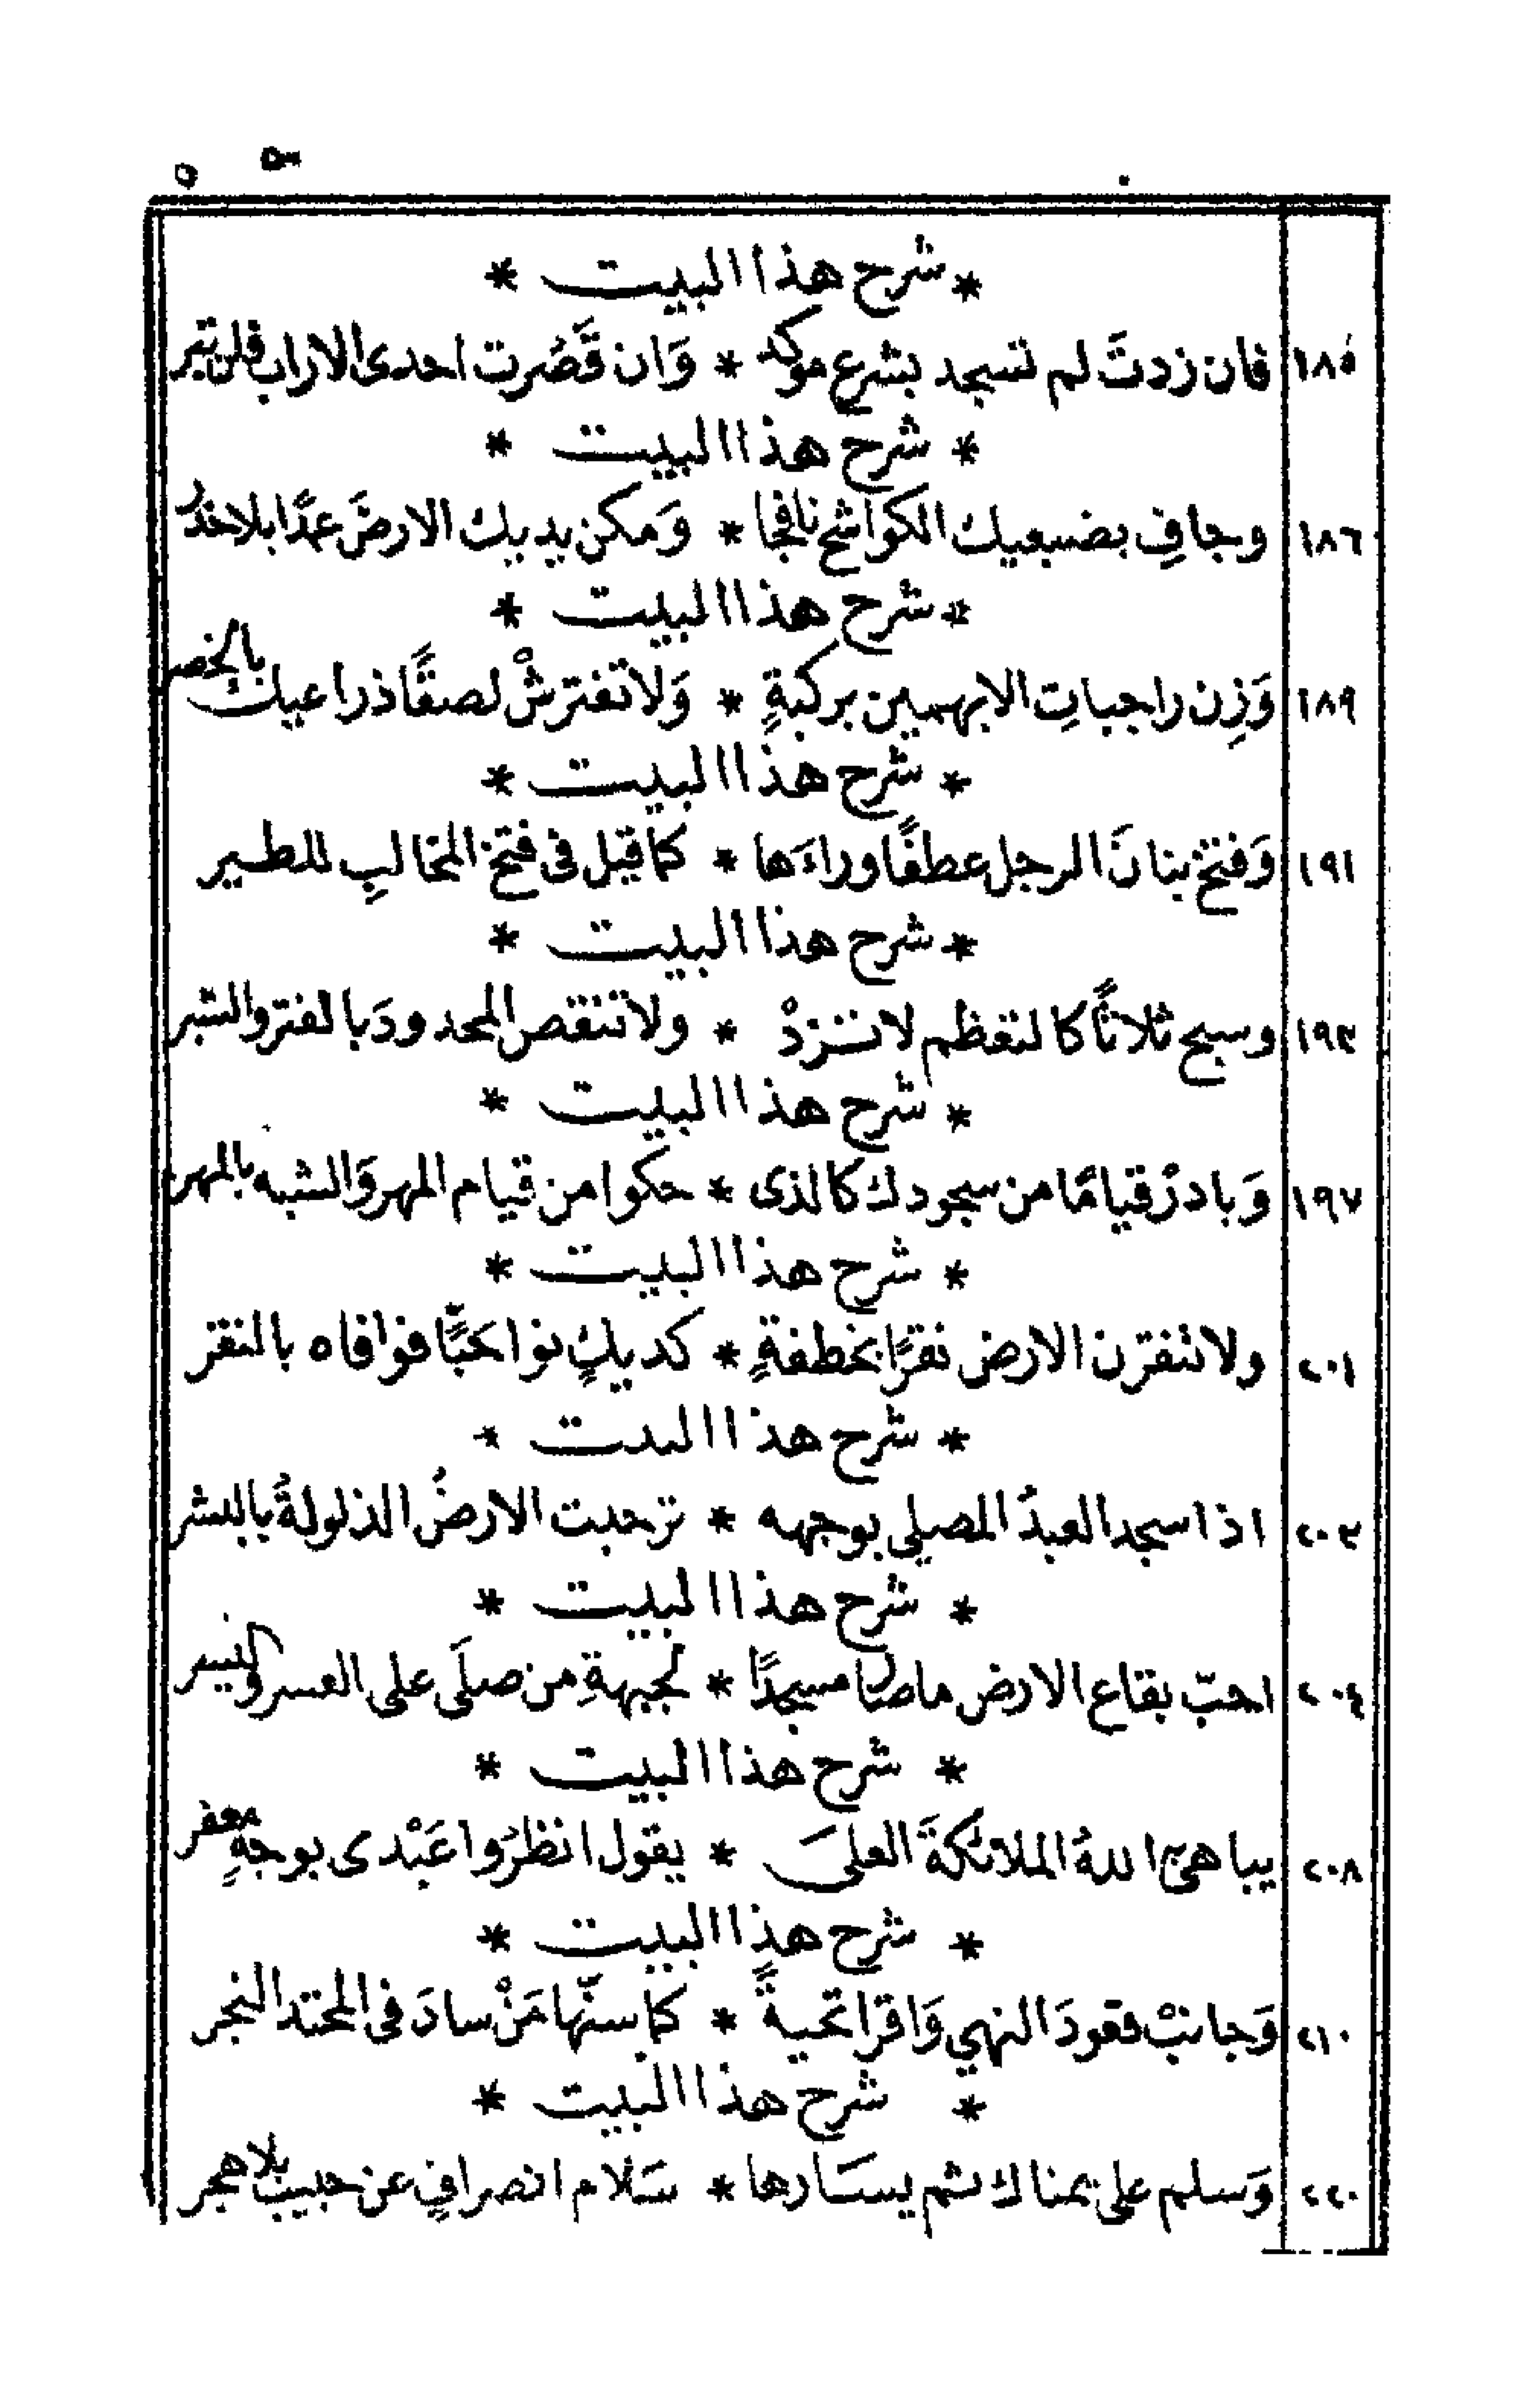 * شرح هذا البيت *
١٨٥ فان زدتَ لم تسجد بشرع موكد * وَان قَصُرت احدى الاراب فلن تبر
* شرح هذا البيت *
١٨٦ وجافِ بضبعيك الكواشح نافجا * وَمكن يديك الارضَ عمدًا بلا خدر
* شرح هذا البيت *
١٨٩ وَزِن راجباتِ الابهمين بركبةٍ * وَلا تفترشْ لصقًا ذراعيك بالخصر
* شرح هذا البيت *
١٩١ وَفتخ بنانَ الرجل عطفًا وراءَها * كما قيل فى فتخ المخالبِ للطير
* شرح هذا البيت *
١٩٣ وسبح ثلاثًا كالتعظم لا تزدْ * ولا تنقص المحدودَ بالفتر والشبر
* شرح هذا البيت *
١٩٧ وَبادرْ قيامًا من سجودك كالذى * حكوا من قيام المهر وَالشبه بالمهر
* شرح هذا البيت *
٢٠١ ولا تنقرن الارض نقرًا بخطفةٍ * كديكٍ نوا حَبًّا فوافاه بالنقر
* شرح هذا البيت *
٢٠٣ اذا سجد العبدُ المصلى بوجهه * ترحبت الارضُ الذلولةُ بالبشر
* شرح هذا البيت *
٢٠٤ احبّ بقاع الارض ما صار مسجدًا * لجبهةِ من صلَى على العسر واليسر
* شرح هذا البيت *
٢٠٨ يباهى الله الملائكةَ العلىَ * يقول انظرُوا عَبْدى بوجهٍ معفر
* شرح هذا البيت *
٢١٠ وَجانبْ قعودَ النهي وَاقرا تحيةً * كما سنّها مَنْ سادَ فى المحتد النجر
* شرح هذا البيت *
٢٢٠ وَسلم على يمناك ثم يسَارها * سَلام انصرافٍ عن حبيب بلا هجر